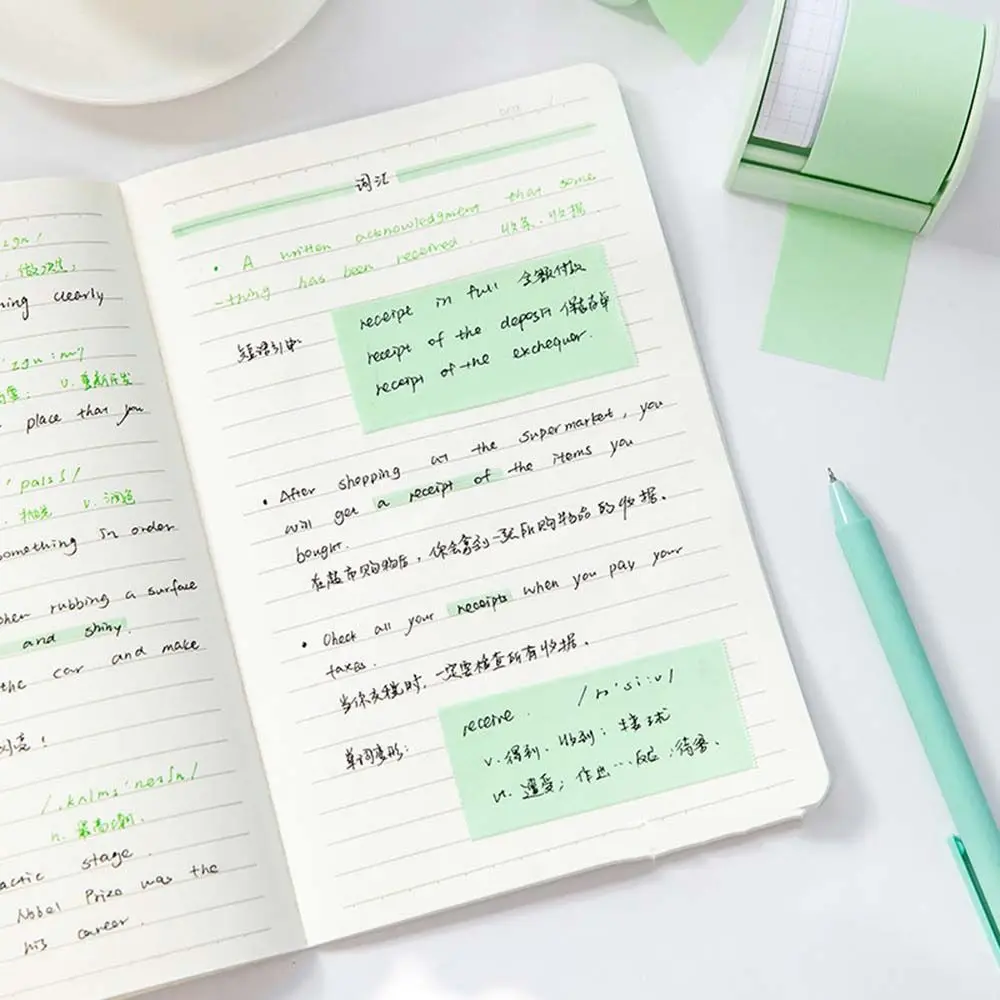 做决定,
ning clearly
v. 重新开发
place that you
v. 润色
something in order
when rubbing a surface
and shiny.
the car and make
闪亮!
n. 最高潮.
actic stage.
Nobel Prize was the
his career.
词汇
• A written acknowledgment that some
-thing has been received. 收条.收据.
短语引申:
receipt in full 全额付款
receipt of the deposit 保存单
receipt of the exchequer.
• After shopping at the supermarket, you
will get a receipt of the items you
bought.
在超市购物后,你会拿到一张所购物品的收据.
• Check all your receipts when you pay your
taxes.
当你交税时,一定要检查所有收据.
单词变形:
receive. /rɪ'si:v/
v. 得到、收到; 接球
vt. 遭受; 作出…反应;待客.